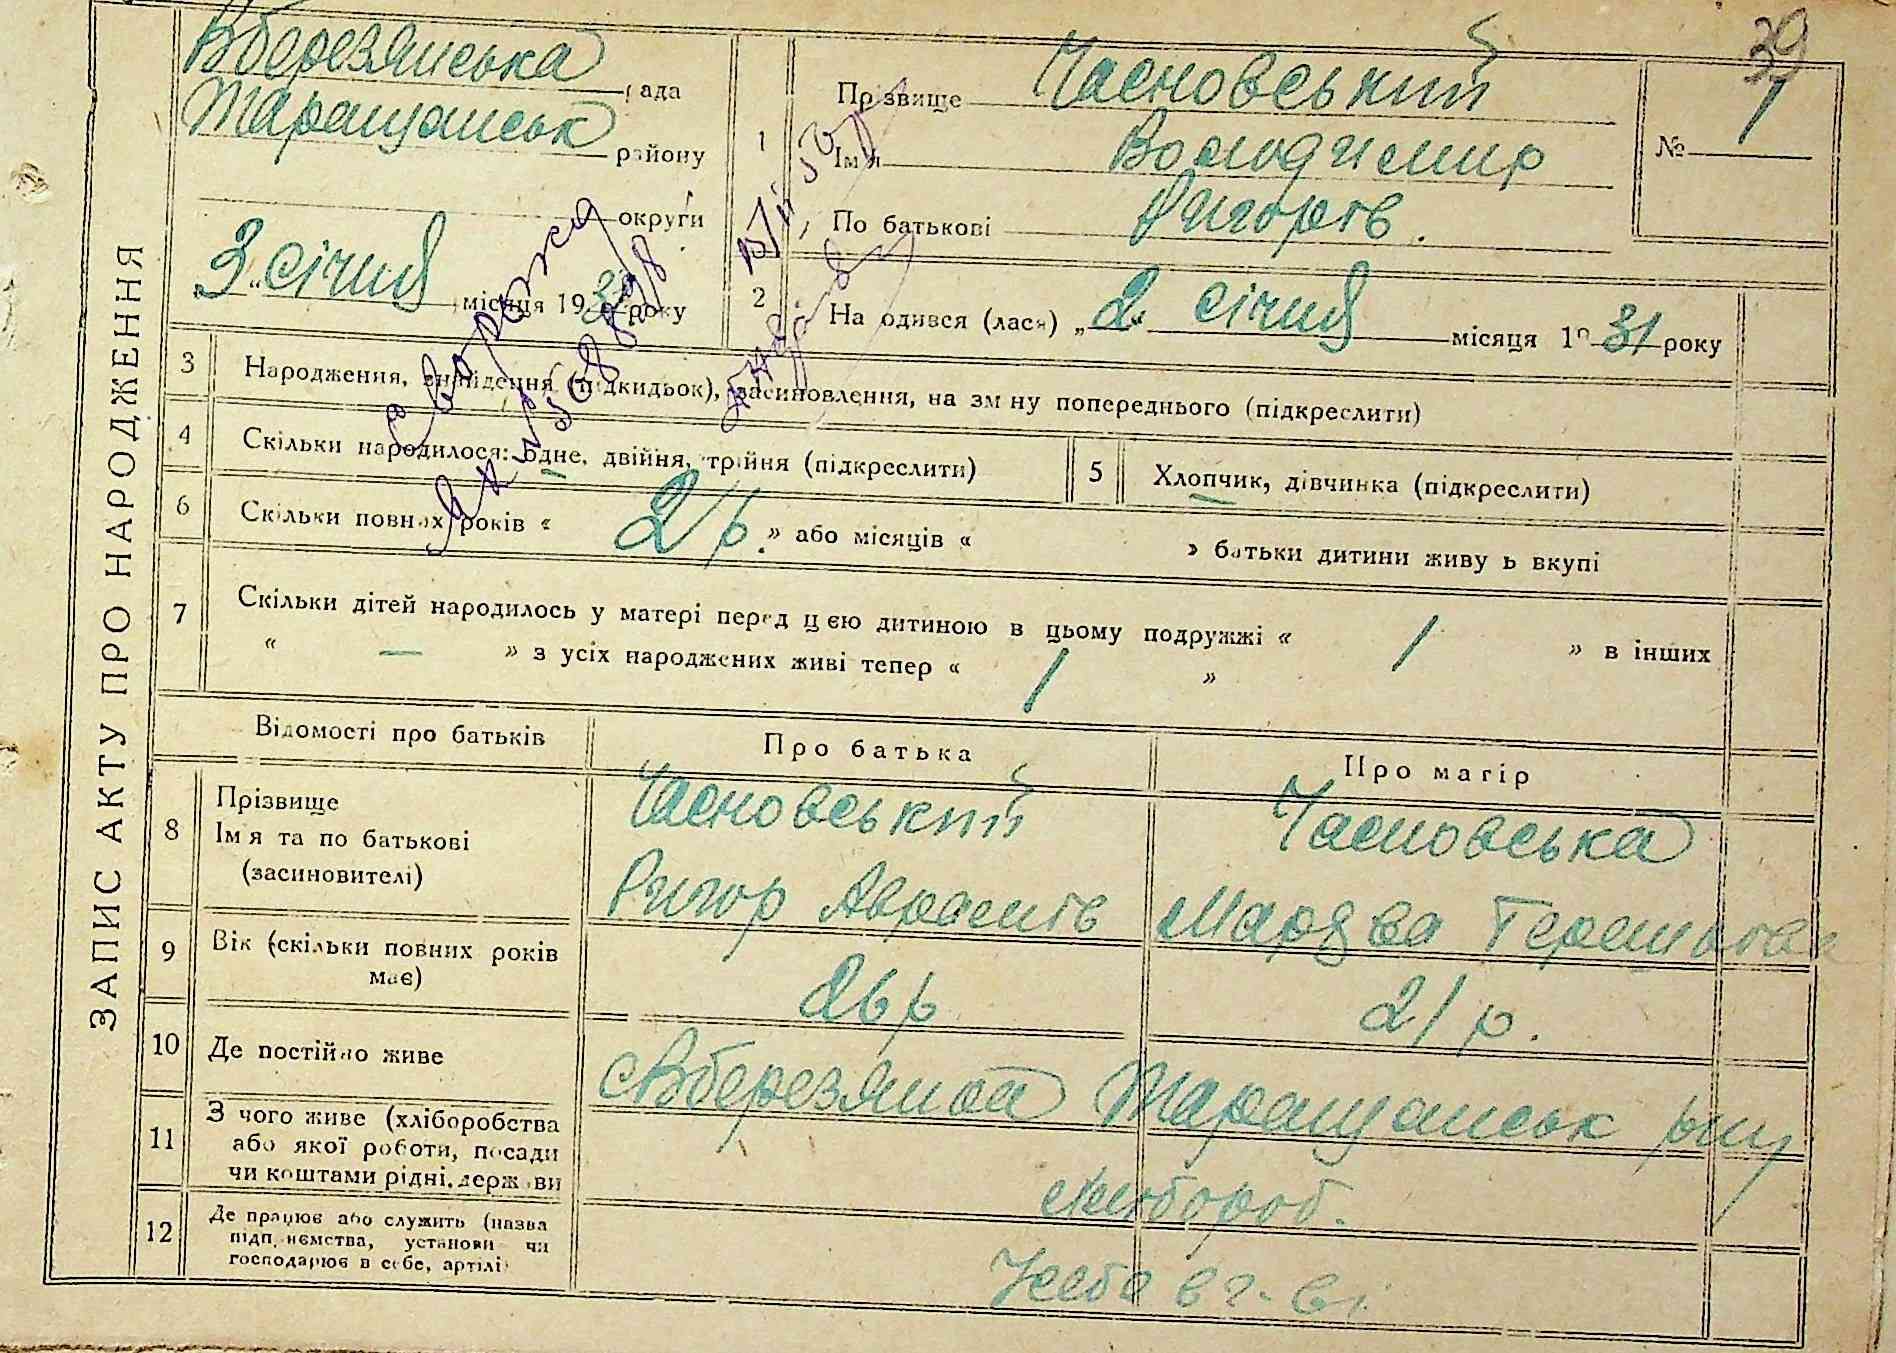 39
ЗАПИС АКТУ ПРО НАРОДЖЕННЯ
Вберезянська рада
Таращанськ району
округи
3 „ січня місяця 1931 року
1
Прізвище Часновський
Ім'я Володимир
По батькові Ригорів.
№ 1
2
На одився (лася) „ 2 “ січня місяця 19 31 року
3 Народження, знайдення (підкидьок), засиновлення, на зміну попереднього (підкреслити)
4 Скільки народилося: Одне, двійня, трійня (підкреслити)
5 Хлопчик, дівчинка (підкреслити)
6 Скільки повних років « 2 р. » або місяців « » батьки дитини живуть вкупі
7 Скільки дітей народилось у матері перед цією дитиною в цьому подружжі « 1 » в інших
« — » з усіх народжених живі тепер « 1 »
Відомості про батьків
Про батька
Про матір
8 Прізвище
Ім'я та по батькові
(засиновителі)
Часновський
Ригор Аврамів
Часновська
Терентієва
9 Вік (скільки повних років
має)
26 р
21 р.
10 Де постійно живе
с Вберезянка Таращанськ рну
11 З чого живе (хліборобства
або якої роботи, посади
чи коштами рідні, держави
хлібороб.
12 Де працює або служить (назва
підприємства, установи чи
господарює в себе, артілі)
У себе в г-ві